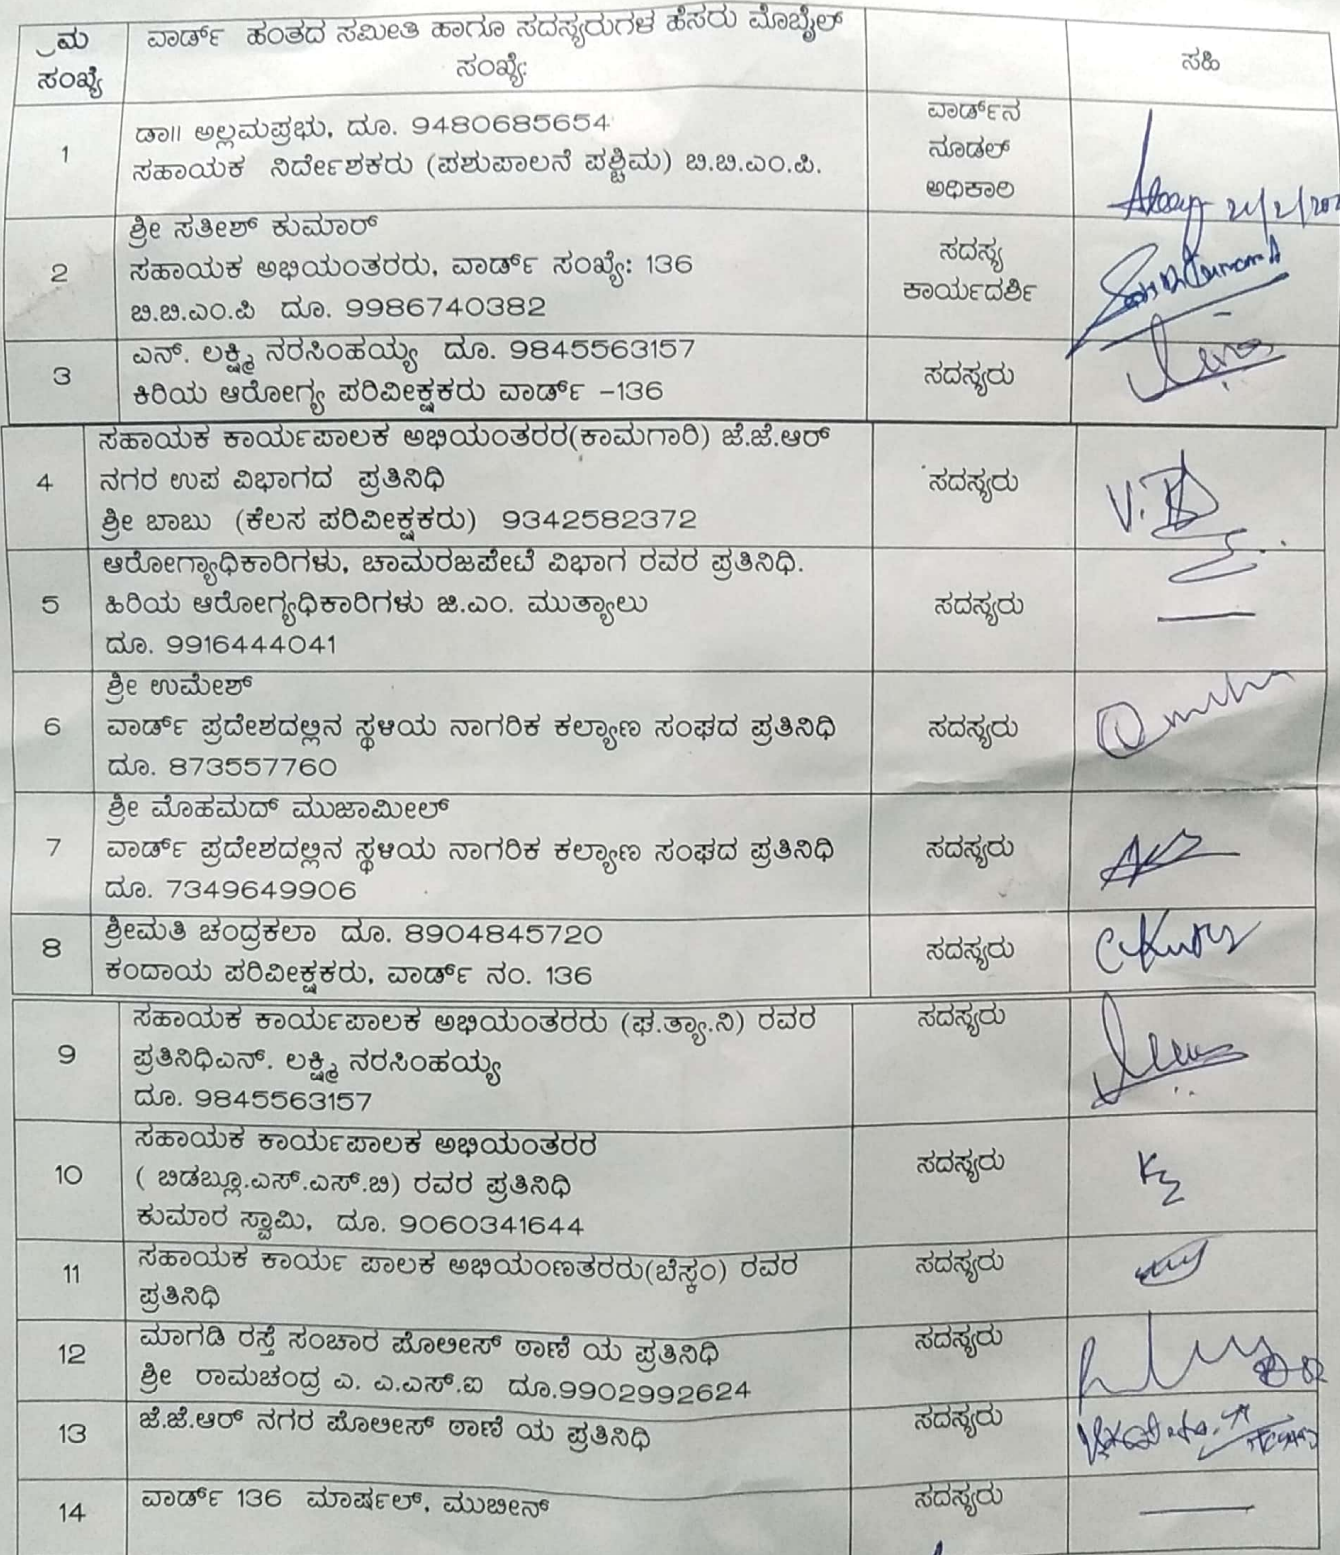 ಕ್ರಮ ಸಂಖ್ಯೆ
ವಾರ್ಡ್ ಹಂತದ ಸಮೀತಿ ಹಾಗೂ ಸದಸ್ಯರುಗಳ ಹೆಸರು ಮೊಬೈಲ್
ಸಂಖ್ಯೆ
ಸಹಿ
1
ಡಾ|| ಅಲ್ಲಮಪ್ರಭು, ದೂ. 9480685654
ಸಹಾಯಕ ನಿರ್ದೇಶಕರು (ಪಶುಪಾಲನೆ ಪಶ್ಚಿಮ) ಬಿ.ಬಿ.ಎಂ.ಪಿ.
ವಾರ್ಡ್‌ನ
ನೂಡಲ್
ಅಧಿಕಾರಿ
2
ಶ್ರೀ ಸತೀಶ್ ಕುಮಾರ್
ಸಹಾಯಕ ಅಭಿಯಂತರರು, ವಾರ್ಡ್ ಸಂಖ್ಯೆ: 136
ಬಿ.ಬಿ.ಎಂ.ಪಿ ದೂ. 9986740382
ಸದಸ್ಯ
ಕಾರ್ಯದರ್ಶಿ
3
ಎನ್. ಲಕ್ಷ್ಮಿ ನರಸಿಂಹಯ್ಯ ದೂ. 9845563157
ಕಿರಿಯ ಆರೋಗ್ಯ ಪರಿವೀಕ್ಷಕರು ವಾರ್ಡ್ -136
ಸದಸ್ಯರು
4
ಸಹಾಯಕ ಕಾರ್ಯಪಾಲಕ ಅಭಿಯಂತರರ(ಕಾಮಗಾರಿ) ಜೆ.ಜೆ.ಆರ್
ನಗರ ಉಪ ವಿಭಾಗದ ಪ್ರತಿನಿಧಿ
ಶ್ರೀ ಬಾಬು (ಕೆಲಸ ಪರಿವೀಕ್ಷಕರು) 9342582372
ಸದಸ್ಯರು
5
ಆರೋಗ್ಯಾಧಿಕಾರಿಗಳು, ಚಾಮರಜಪೇಟೆ ವಿಭಾಗ ರವರ ಪ್ರತಿನಿಧಿ.
ಹಿರಿಯ ಆರೋಗ್ಯಧಿಕಾರಿಗಳು ಜಿ.ಎಂ. ಮುತ್ಯಾಲು
ದೂ. 9916444041
ಸದಸ್ಯರು
6
ಶ್ರೀ ಉಮೇಶ್
ವಾರ್ಡ್ ಪ್ರದೇಶದಲ್ಲಿನ ಸ್ಥಳಿಯ ನಾಗರಿಕ ಕಲ್ಯಾಣ ಸಂಘದ ಪ್ರತಿನಿಧಿ
ದೂ. 873557760
ಸದಸ್ಯರು
7
ಶ್ರೀ ಮೊಹಮದ್ ಮುಜಾಮೀಲ್
ವಾರ್ಡ್ ಪ್ರದೇಶದಲ್ಲಿನ ಸ್ಥಳಿಯ ನಾಗರಿಕ ಕಲ್ಯಾಣ ಸಂಘದ ಪ್ರತಿನಿಧಿ
ದೂ. 7349649906
ಸದಸ್ಯರು
8
ಶ್ರೀಮತಿ ಚಂದ್ರಕಲಾ ದೂ. 8904845720
ಕಂದಾಯ ಪರಿವೀಕ್ಷಕರು, ವಾರ್ಡ್ ನಂ. 136
ಸದಸ್ಯರು
9
ಸಹಾಯಕ ಕಾರ್ಯಪಾಲಕ ಅಭಿಯಂತರರು (ಘ.ತ್ಯಾ.ನಿ) ರವರ
ಪ್ರತಿನಿಧಿಎನ್. ಲಕ್ಷ್ಮಿ ನರಸಿಂಹಯ್ಯ
ದೂ. 9845563157
ಸದಸ್ಯರು
10
ಸಹಾಯಕ ಕಾರ್ಯಪಾಲಕ ಅಭಿಯಂತರರ
( ಬಿಡಬ್ಲೂ.ಎಸ್.ಎಸ್.ಬಿ) ರವರ ಪ್ರತಿನಿಧಿ
ಕುಮಾರ ಸ್ವಾಮಿ, ದೂ. 9060341644
ಸದಸ್ಯರು
11
ಸಹಾಯಕ ಕಾರ್ಯ ಪಾಲಕ ಅಭಿಯಂಣತರರು(ಬೆಸ್ಕಂ) ರವರ
ಪ್ರತಿನಿಧಿ
ಸದಸ್ಯರು
12
ಮಾಗಡಿ ರಸ್ತೆ ಸಂಚಾರ ಪೊಲೀಸ್ ಠಾಣೆ ಯ ಪ್ರತಿನಿಧಿ
ಶ್ರೀ ರಾಮಚಂದ್ರ ಎ. ಎ.ಎಸ್.ಐ ದೂ.9902992624
ಸದಸ್ಯರು
13
ಜೆ.ಜೆ.ಆರ್ ನಗರ ಪೊಲೀಸ್ ಠಾಣೆ ಯ ಪ್ರತಿನಿಧಿ
ಸದಸ್ಯರು
14
ವಾರ್ಡ್ 136 ಮಾರ್ಷಲ್, ಮುಬೀನ್
ಸದಸ್ಯರು